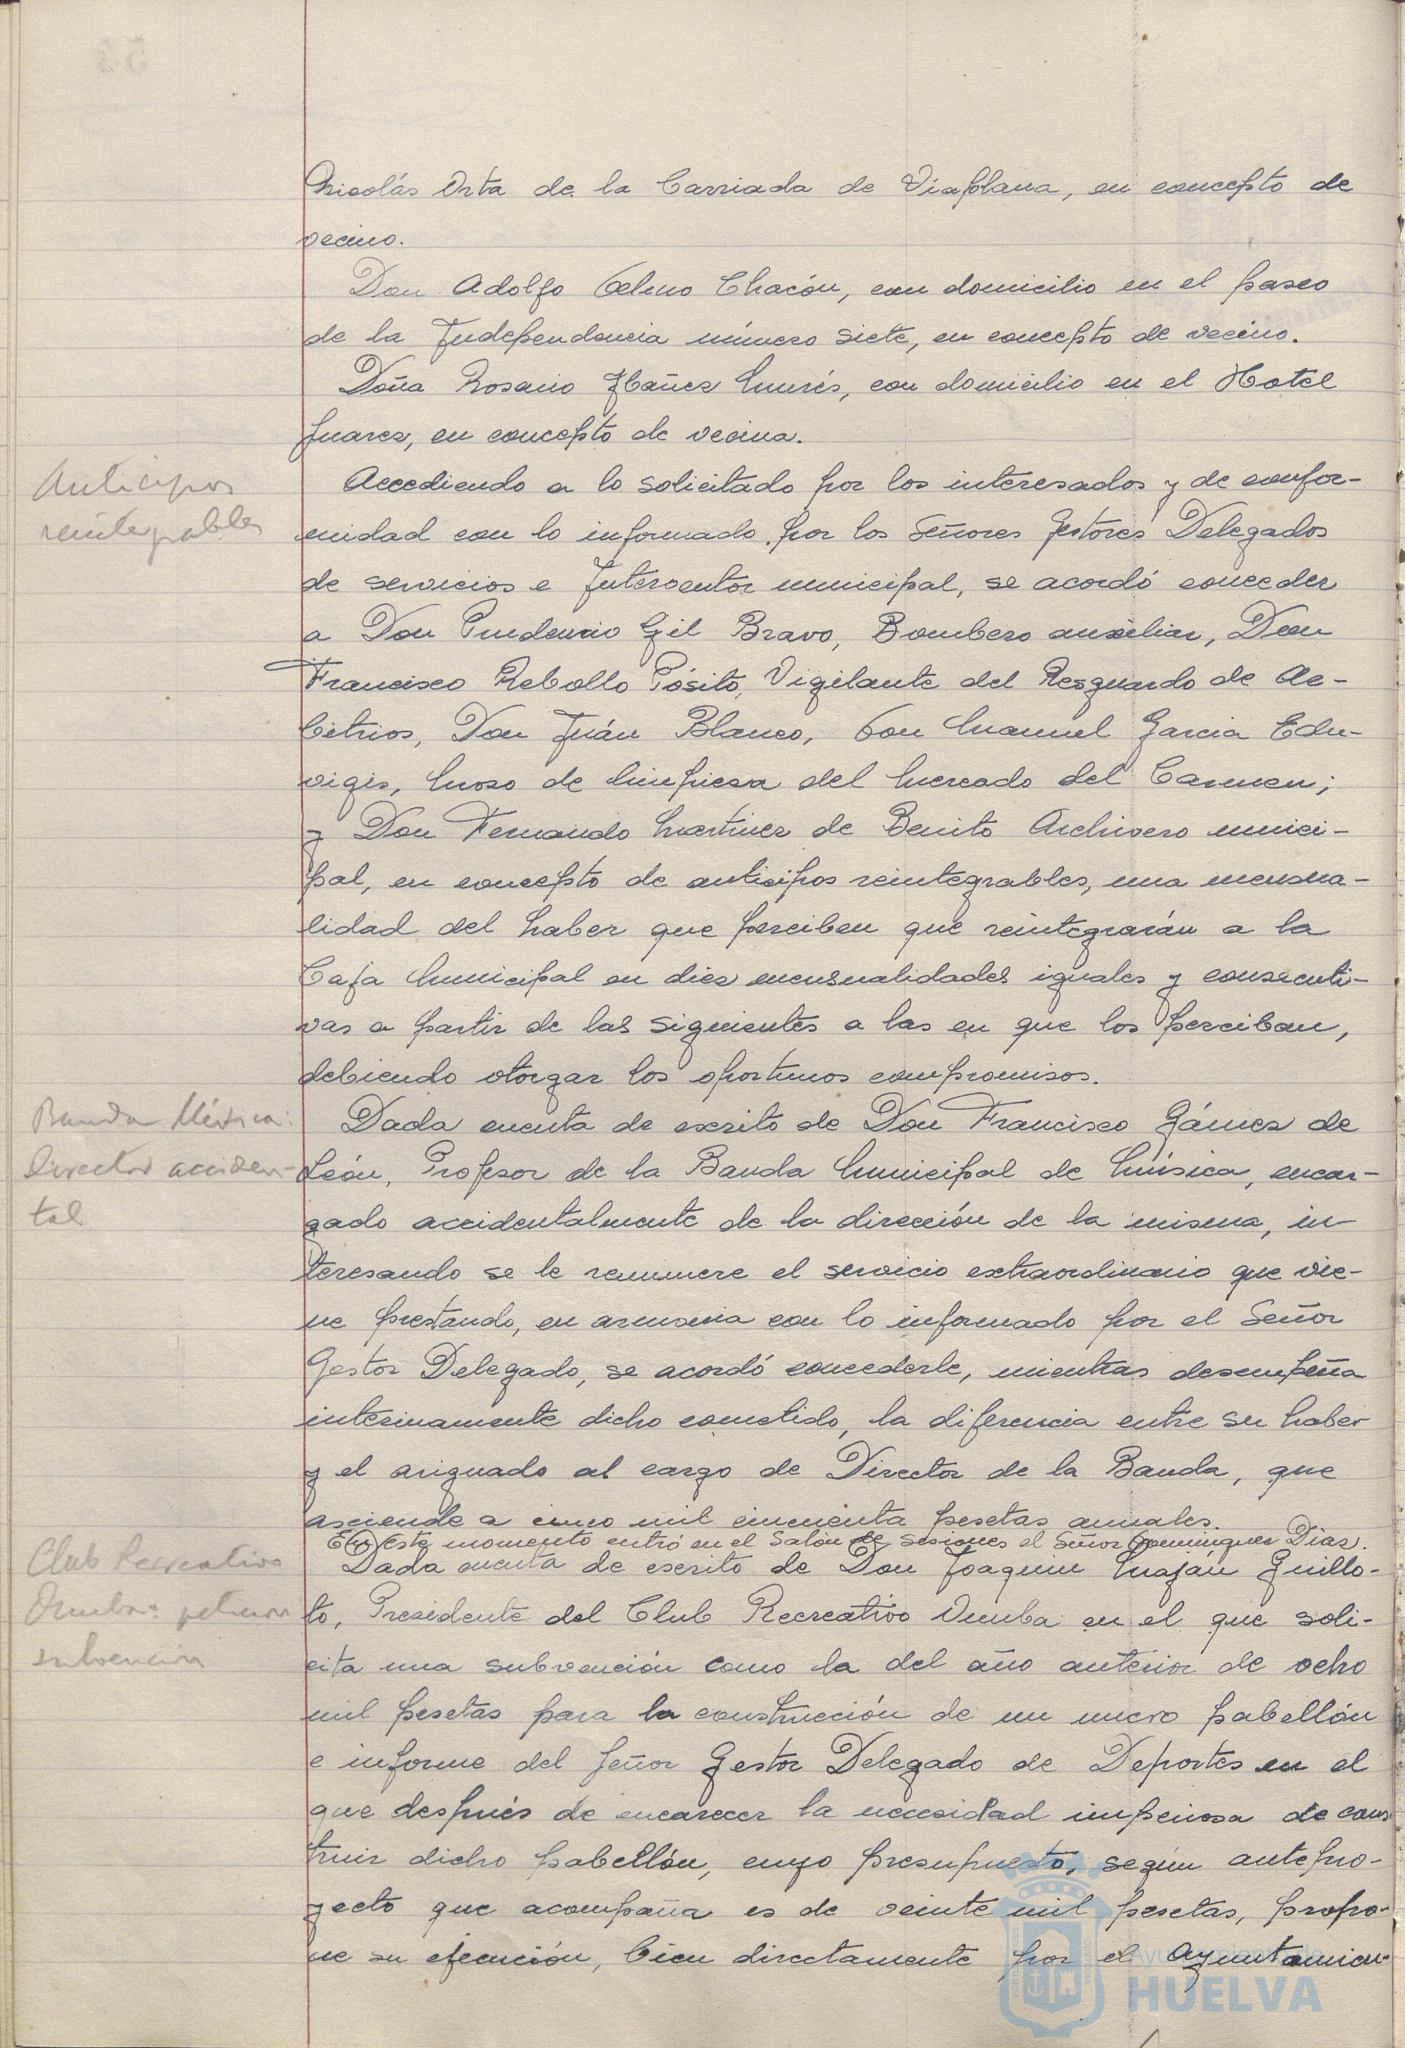 Nicolás Orta de la Barriada de Viaplana, en concepto de
vecino.
Don Adolfo Celmo Chacón, con domicilio en el paseo
de la Independencia número siete, en concepto de vecino.
Doña Rosario Ibañez, con domicilio en el Hotel
Juarez, en concepto de vecina.
Anticipos
reintegrables
Accediendo a lo solicitado por los interesados y de confor-
midad con lo informado por los Señores Gestores Delegados
de servicios e Interventor municipal, se acordó conceder
a Don Prudencio Gil Bravo, Bombero auxiliar, Don
Francisco Rebollo Pósito, Vigilante del Resguardo de Ar-
bitrios, Don Juán Blanco, Don Manuel Garcia Edu-
vigis, Mozo de limpieza del Mercado del Carmen;
y Don Fernando Martinez de Benito Archivero munici-
pal, en concepto de anticipos reintegrables, una mensua-
lidad del haber que perciben que reintegrarán a la
Caja Municipal en diez mensualidades iguales y consecuti-
vas a partir de las siguientes a las en que los perciban,
debiendo otorgar los oportunos compromisos.
Banda Música:
Director acciden-
tal
Dada cuenta de escrito de Don Francisco Gámez de
León, Profesor de la Banda Municipal de Música, encar-
gado accidentalmente de la dirección de la misma, in-
teresando se le remunere el servicio extraordinario que vie-
ne prestando, en armonia con lo informado por el Señor
Gestor Delegado, se acordó concederle, mientras desempeña
interinamente dicho cometido, la diferencia entre su haber
y el asignado al cargo de Director de la Banda, que
asciende a cinco mil cincuenta pesetas anuales.
En este momento entró en el Salón de sesiones el Señor Dominguez Dias.
Club Recreativo
Onuba: peticion
subvención
Dada cuenta de escrito de Don Joaquin Guillo-
to, Presidente del Club Recreativo Onuba en el que soli-
cita una subvención como la del año anterior de ocho
mil pesetas para la construcción de un nuevo pabellón
e informe del Señor Gestor Delegado de Deportes en el
que después de encarecer la necesidad imperiosa de cons
truir dicho pabellón, cuyo presupuesto, según antepro-
yecto que acompaña es de veinte mil pesetas, propo-
ne su ejecución, bien directamente por el Ayuntamien-
Ayuntamiento de
HUELVA